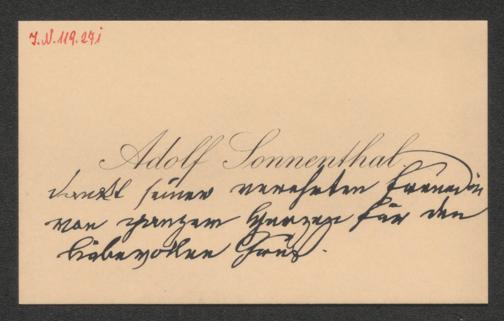 J.N. 119.241
Adolf Sonnenthal
dankt seiner verehrten Freundin
von ganzem Herzen für den
liebevollen Gruß.